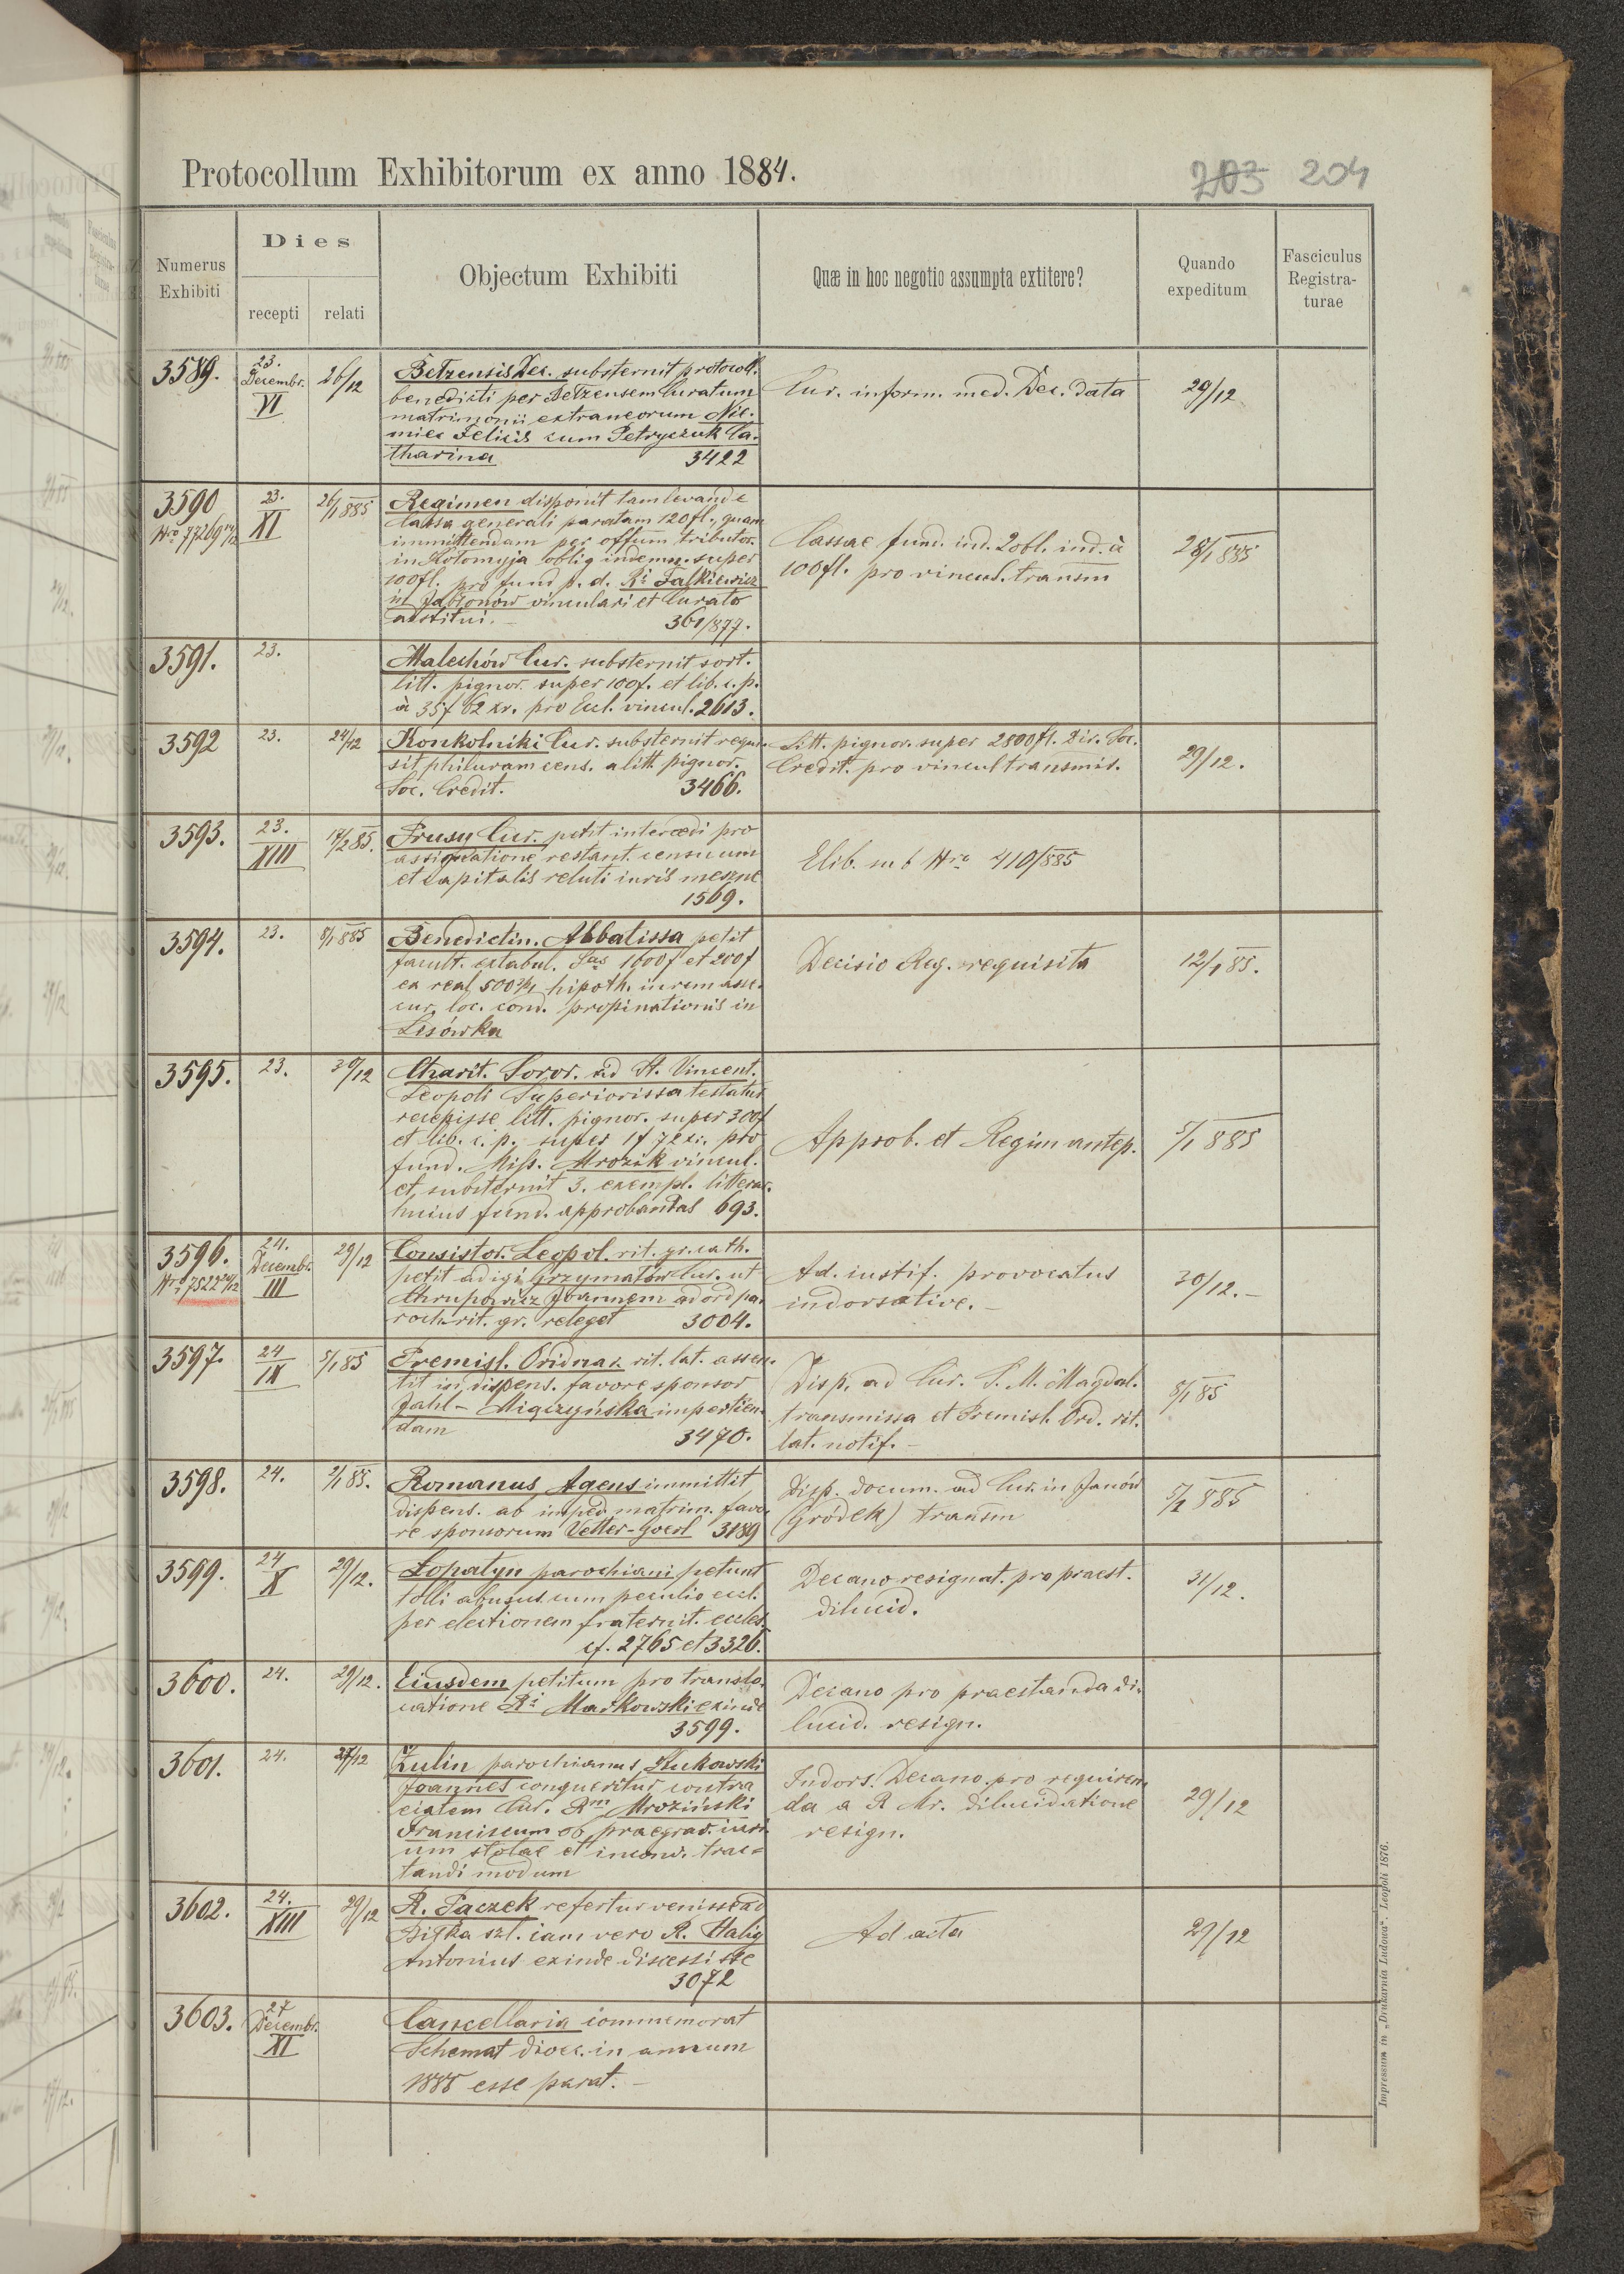 Protocollum Exhibitorum ex anno 1884.
203 204
Numerus Exhibiti
Dies
recepti
relati
Objectum Exhibiti
Quæ in hoc negotio assumpta extitere?
Quando expeditum
Fasciculus Registra-
turae
3589. 23. Decembr. VI 26/12
Bełzensis Dec. substernit protocoll.
benedicti per Bełzensem Curatum
matrimonii extraneorum Nie-
miec Felicis cum Petryczuk Ca-
tharina 3422
Cur. inform. med. Dec. data
29/12
3590 Nro 77269 23. XI 26/1 885
Regimen disponit tam levand e
Cassa generali paratam 120 fl., quam
immittendam per offium tributor.
in Kołomyja oblig indemn. super
100 fl. pro fund p. d. Ri Falkiewicz
in Jabłonów vinculari et Curato
restitui. 361/877.
Cassae fund. ind. 2 obl. ind. à
100 fl. pro vincul. transm
28/1 885
3591. 23.
Malechów Cur. substernit sort.
litt. pignor. super 100 f. et lib. c. p.
à 35 f 62 xr. pro Eccl. vincul. 2613.
3592 23. 24/12
Konkolniki Cur. substernit requi-
sit philuram cens. a litt pignor.
Soc. Credit. 3466.
Litt. pignor. super 2800 fl. Dir. Soc.
Credit. pro vincul transmis.
29/12.
3593. 23. XIII 17/2 85.
Prusy Cur. petit intercedi pro
assignatione restant. censuum
et capitalis reluti iuris meszne
1569.
Elib. sub Nro 410/885
3594. 23. 8/1 885
Benedictin. Abbatissa petit
facult. extabul. Sas 1600 f et 200 f
ex real 500 2/4 hipoth. in rem asse-
cur. loc. cond. propinationis in
Lesówka
Decisio Reg. requisita
12/1 85.
3595. 23. 30/12
Charit. Soror. ad St. Vincent.
Leopoli Superiorissa testatur
recepisse litt. pignor. super 300 f
et lib. c. p. super 1 f 72 xr. pro
fund. Miss. Mrozik vincul.
et substernit 3. exempl. litterar.
huius fund. approbandas 693.
Approb. et Regim antep.
5/1 885
3596. Nro 7522 24. Decembr. III 29/12
Consistor. Leopol. rit. gr. cath.
petit adigi Grzymałów Cur. ut
Chrupowicz Joannem ad ord pa-
roch rit. gr. releget 3004.
Ad. iustif. provocatus
indorsative. –
30/12. –
3597. 24 IX 5/1 85
Premisl. Oridnar. rit. lat. assen-
tit in dispens. favore sponsor
Jahl – Migczyńska impertien-
dam 3470.
Disp. ad Cur. S. M. Magdal.
transmissa et Premisl. Ord. rit.
lat. notif. –
8/1 85
3598. 24. 2/1 85.
Romanus Agens immittit
dispens. ab imped matrim. favo-
re sponsorum Vetter-Goerl 3189
Disp. docum. ad Cur. in Janów
(Gródek) transm
5/1 885
3599. 24 X 29/12.
Łopatyn parochiani petunt
tolli abusus cum peculio eccl.
per electionem fraternit. eccles.
cf. 2765 et 3326.
Decano resignat. pro praest.
dilucid.
31/12.
3600. 24. 29/12.
Eiusdem petitum pro translo-
catione Ri Markowski exinde
3599.
Decano pro praestanda di-
lucid. resign.
3601. 24. 27/12
Żulin parochianus Żukowski
Joannes conqueritur contra
eiatem Cur. Rm Mroziński
Franciscum ob praegrav. iuri-
um stolae et inconv. trac-
tandi modum
Indors. Decano pro requiren-
da a R Mr. dilucidatione
resign.
29/12
3602. 24. XIII 29/12
R. Paczek refertur venisse ad
Biłka szl. iam vero R. Halig
Antonius exinde discessisse
3072
Ad acta
29/12
3603. 27 Decembr. XI
Cancellaria commemorat
Schemat dioec. in annum
1885 esse parat. –
Impressum in „Drukarnia Ludowa“ Leopoli 1876.